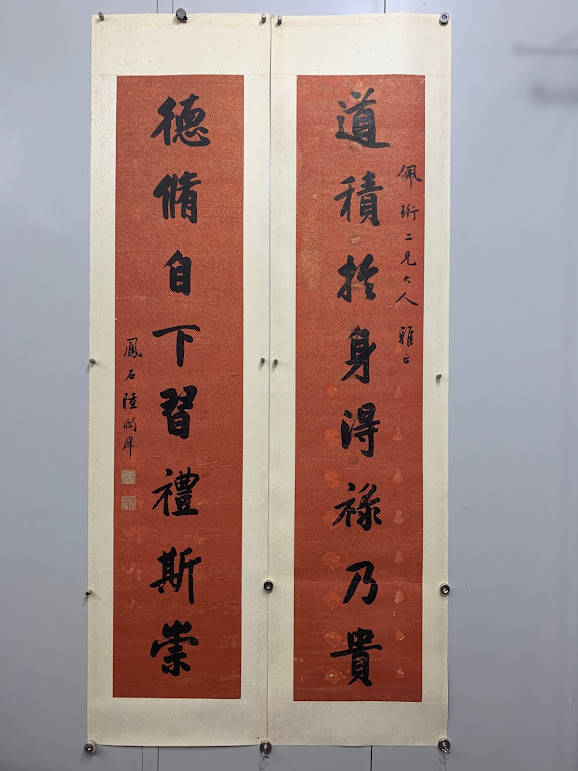 道積於身得祿乃貴
佩珩二兄大人雅正
德脩自下習禮斯崇
鳳石陸潤庠